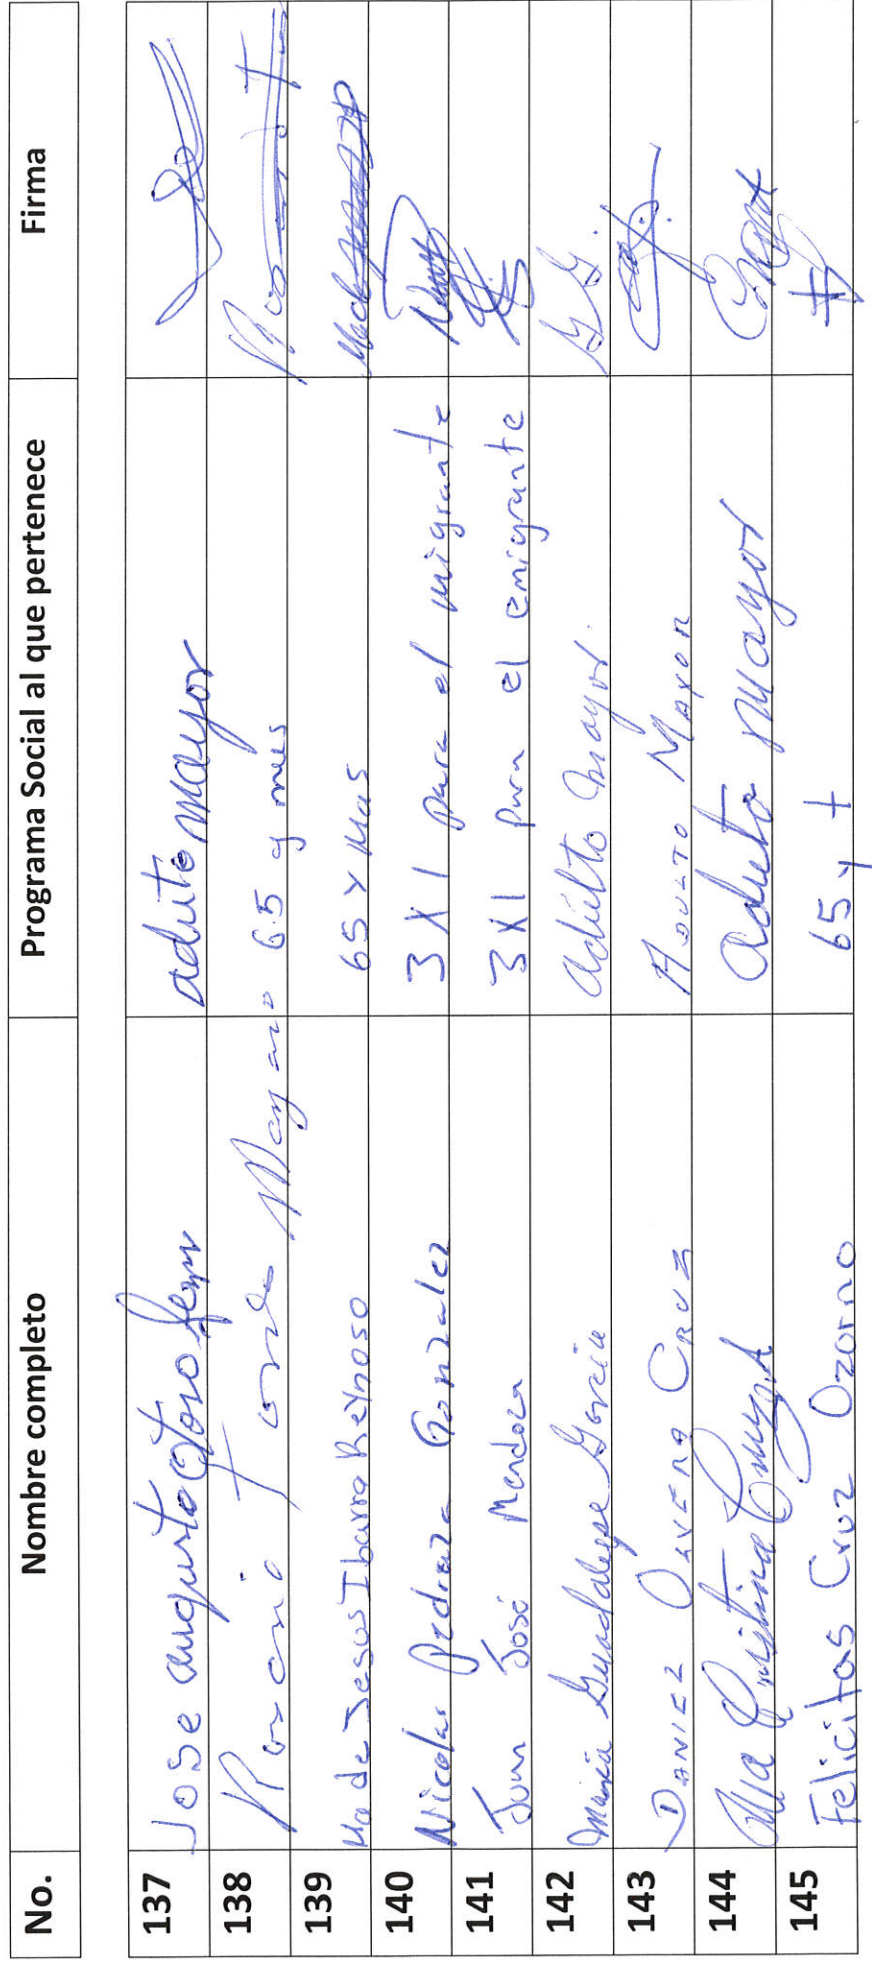 No. Nombre completo Programa Social al que pertenece Firma
137 Jose augusto aduto mayor
138 Rosario 65 y más
139 Ma de Jesus Ibarra Reynoso 65 y mas
140 Nicolas Pedraza Gonzalez 3 X 1 para el migrante
141 Juan José Mendoza 3 X 1 para el emigrante
142 Maria Guadalupe Garcia adulto mayor. G G.
143 DANIEL OLVERA CRUZ ADULTO MAYOR
144 Ma Cristina Cruz A aduto mayor
145 Felicitas Cruz Ozorno 65 y +